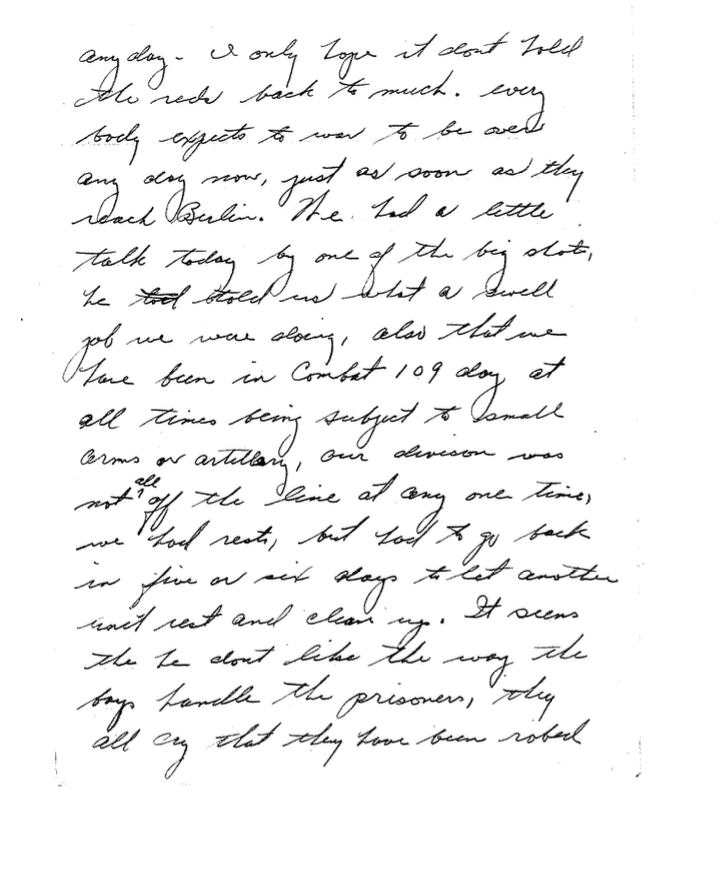 any day - I only hope it dont hold
the reds back to much. every
body expects to war to be over
any day now, just as soon as they
reach Berlin. We had a little
talk today by one of the big shots,
he told us what a swell
job we were doing, also that we
have been in Combat 109 day at
all times being subject to small
arms or artillary, our divison was
not all off the line at any one time,
we had rests, but had to go back
in five or six days to let another
unit rest and clean up. It seems
the he dont like the way the
boys handle the prisoners, they
all cry that they have been robed